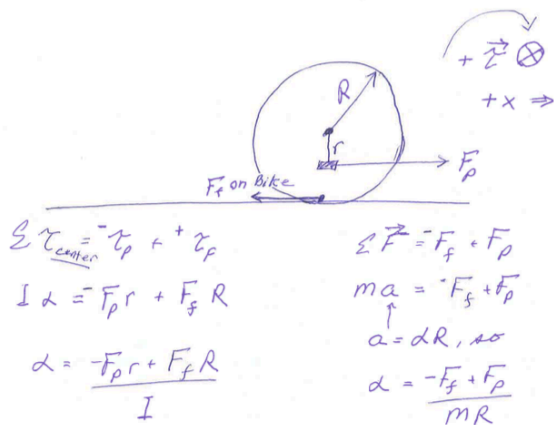 + τ⃗ ⊗
+x ⇒
R
r
F_p
F_f on Bike
Στ_center = ⁻τ_p + ⁺τ_f
Iα = ⁻F_p r + F_f R
α = (-F_p r + F_f R) / I
ΣF⃗ = ⁻F_f + F_p
ma = ⁻F_f + F_p
↑
a = αR, so
α = (-F_f + F_p) / mR